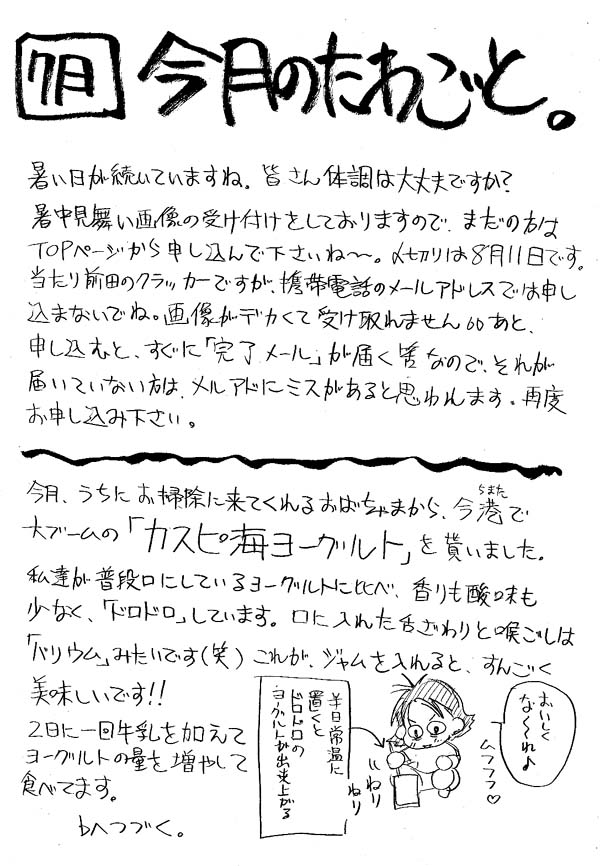 7月 今月のたわごと。
暑い日が続いていますね。皆さん体調は大丈夫ですか?
暑中見舞い画像の受け付けをしておりますので、まだの方は
TOPページから申し込んで下さいね〜。〆切りは8月11日です。
当たり前田のクラッカーですが、携帯電話のメールアドレスでは申し
込まないでね。画像がデカくて受け取れません。。あと、
申し込むと、すぐに「完了メール」が届く筈なので、それが
届いていない方は、メルアドにミスがあると思われます。再度
お申し込み下さい。
今月、うちにお掃除に来てくれるおばちゃまから、今港(ちまた)で
大ブームの「カスピ海ヨーグルト」を貰いました。
私達が普段口にしているヨーグルトに比べ、香りも酸味も
少なく、「ドロドロ」しています。口に入れた舌ざわりと喉ごしは
「バリウム」みたいです(笑)これが、ジャムを入れると、すんごく
美味しいです!!
2日に一回牛乳を加えて
ヨーグルトの量を増やして
食べてます。
bへつづく。
半日常温に
置くと
ドロドロの
ヨーグルトが出来上がる
ねり
ねり
おいしく
な〜れ♪
ムフフフ♡